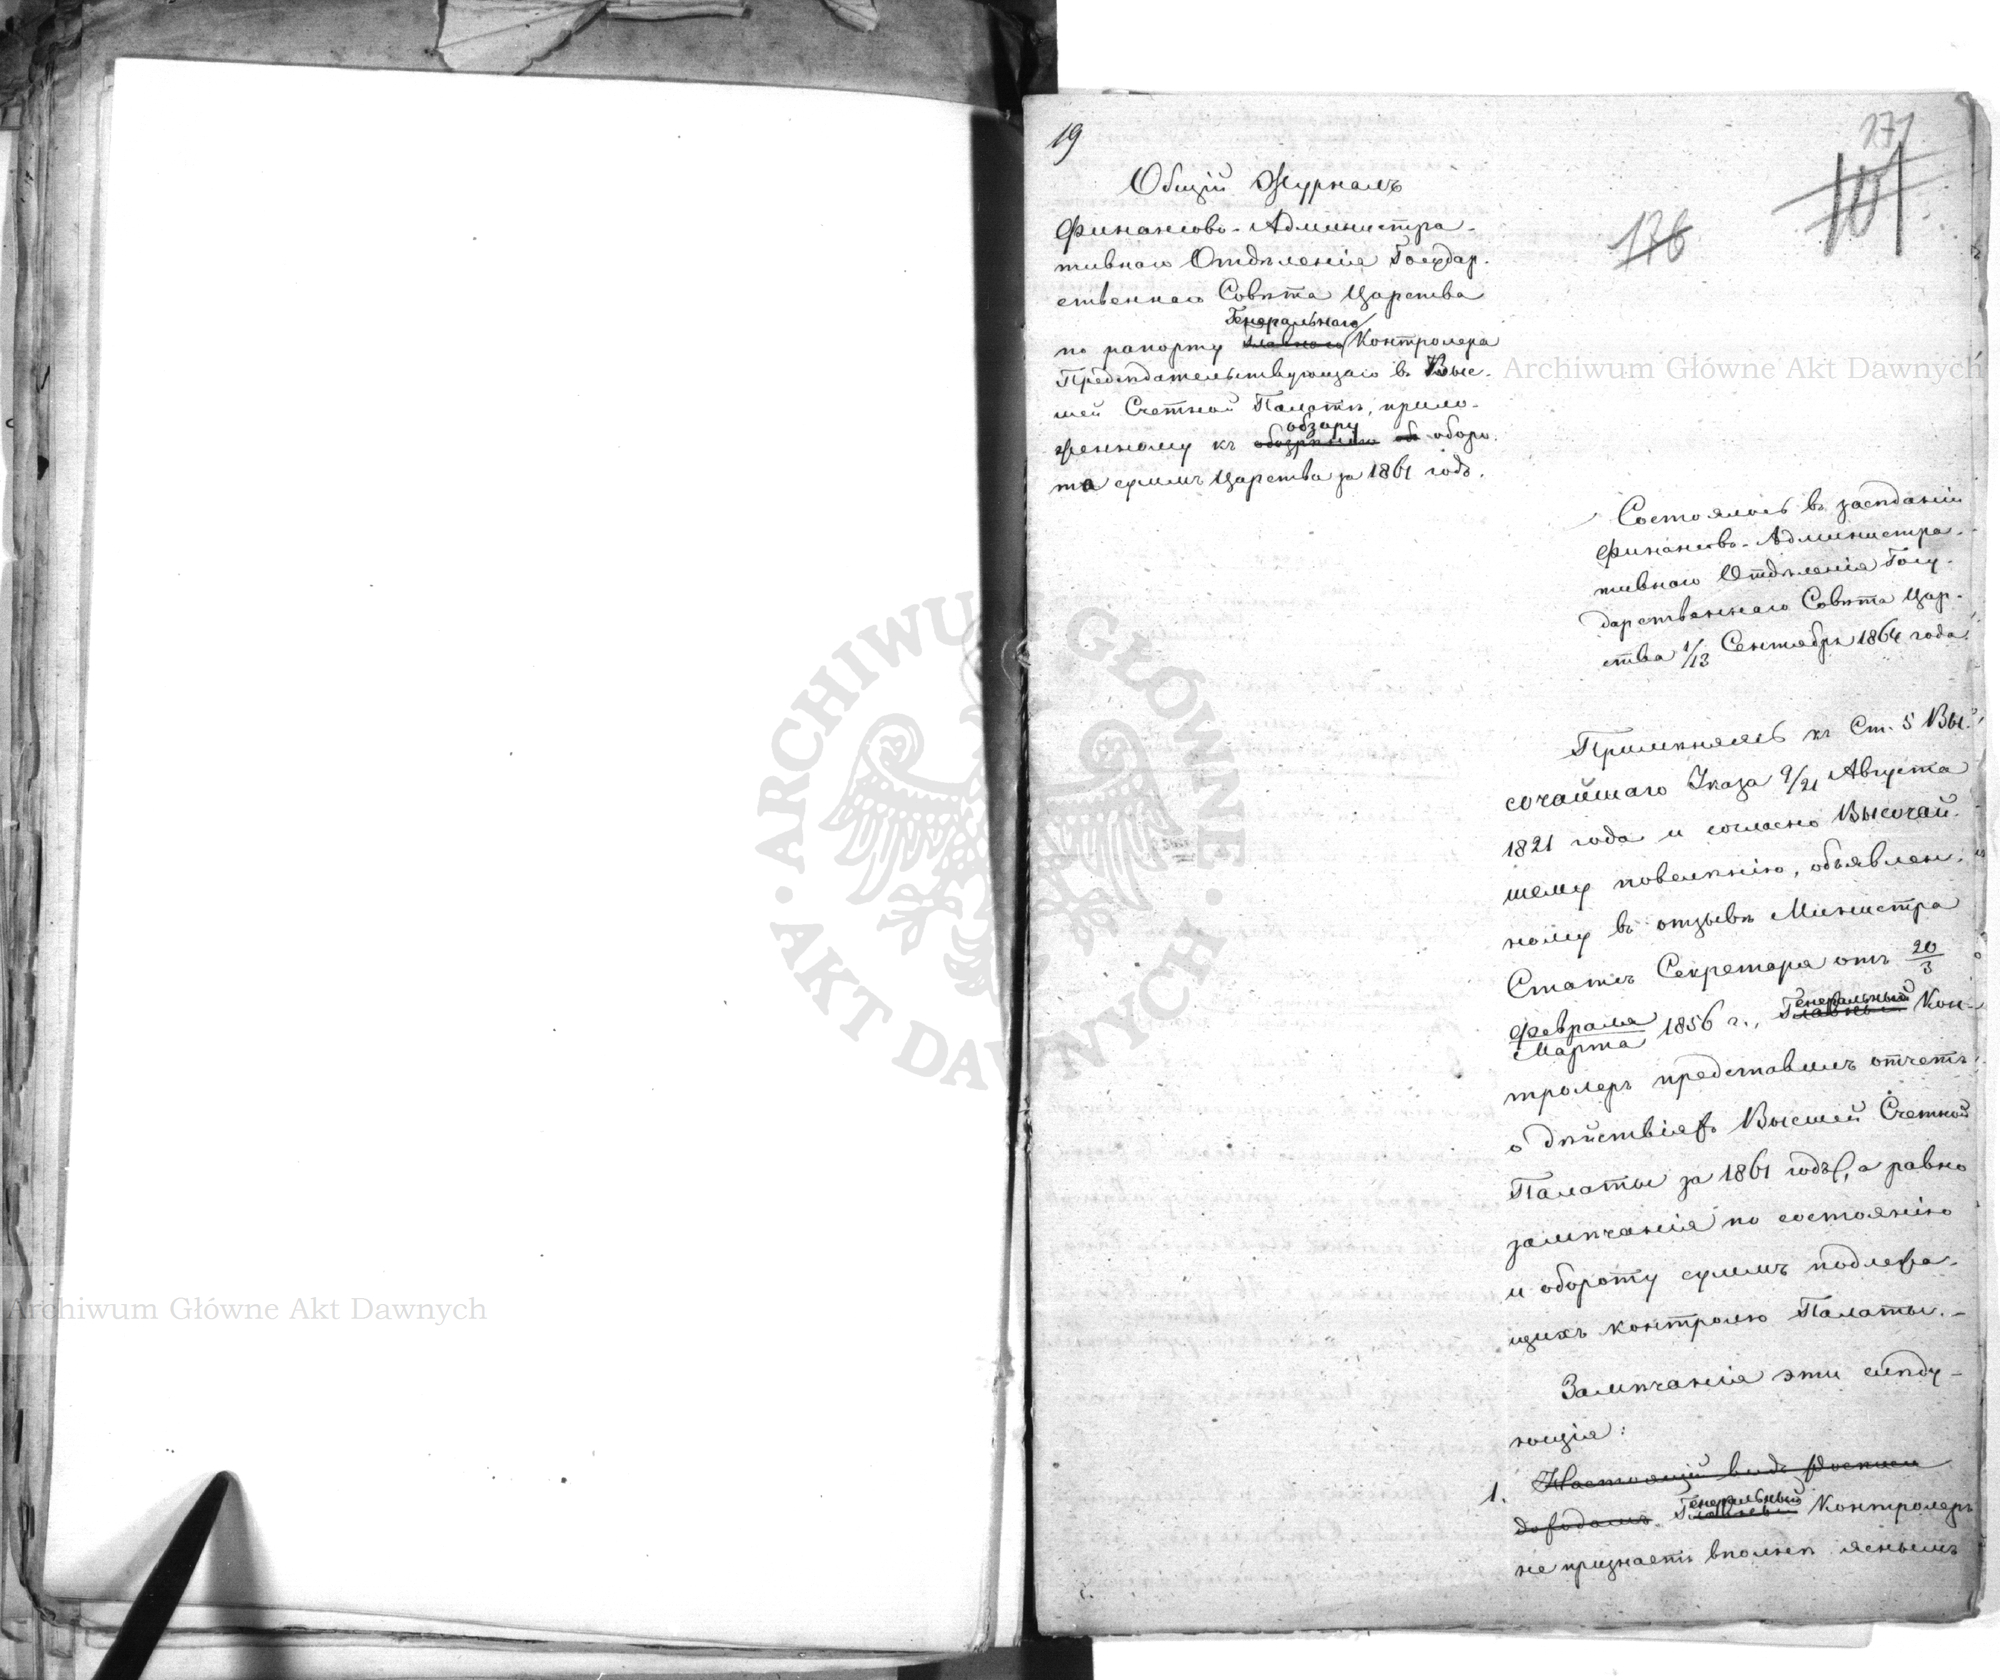 19
171
101
176
Общій Журналъ
Финансово-Администра-
тивнаго Отдѣленія Государ-
ственнаго Совѣта Царства
Генеральнаго
по рапорту Главнаго Контролера
Предсѣдательствующаго въ Выс-
шей Счетной Палатѣ, прило-
обзору
женному къ обозрѣнію об оборо-
та суммъ Царства за 1861 годъ.
Состоялось въ засѣданіи
Финансово-Администра-
тивнаго Отдѣленія Госу-
дарственнаго Совѣта Цар-
ства 1/13 Сентября 1864 года.
Примѣняясь къ Ст. 5 Вы-
сочайшаго Указа 9/21 Августа
1821 года и согласно Высочай-
шему повелѣнію, объявлен-
ному въ отзывѣ Министра
Статсъ Секретаря отъ 20/3
Февраля/Марта 1856 г., Генеральный Главный Кон-
тролеръ представилъ отчетъ
о дѣйствіяхъ Высшей Счетной
Палаты за 1861 годъ, а равно
замѣчанія по состоянію
и обороту суммъ подлежа-
щихъ контролю Палаты.-
Замѣчанія эти слѣду-
ющія:
1. Настоящій видъ росписи
Генеральный
доходамъ Главный Контролеръ
не признаетъ вполнѣ яснымъ
Archiwum Główne Akt Dawnych
Archiwum Główne Akt Dawnych
ARCHIWUM GŁÓWNE
AKT DAWNYCH